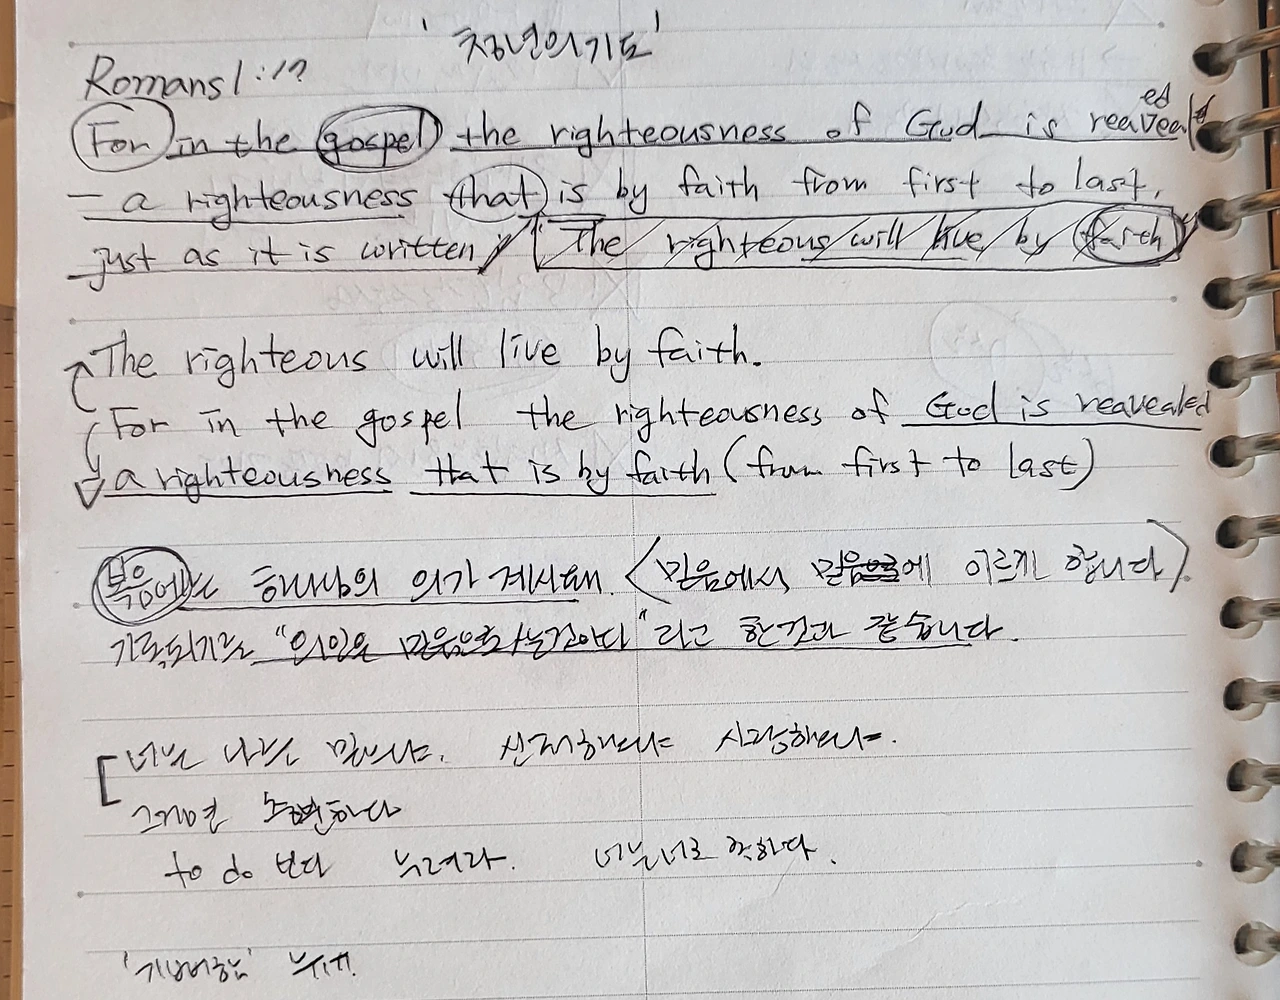 '청년의 기도'
Romans 1:17
For in the gospel the righteousness of God is reavealed
– a righteousness that is by faith from first to last,
just as it is written, "The righteous will live by faith"
The righteous will live by faith.
For in the gospel the righteousness of God is reavealed
a righteousness that is by faith (from first to last)
복음에는 하나님의 의가 계시돼. <믿음에서, 믿음에 이르게 합니다>.
기록되기를 "의인은 믿음으로 사는것이다"라고 한것과 같습니다.
너는 나를 믿느냐. 신뢰하느냐 사랑하느냐.
그거면 충분하다
to do 보다 누려라. 너는 너로 족하다.